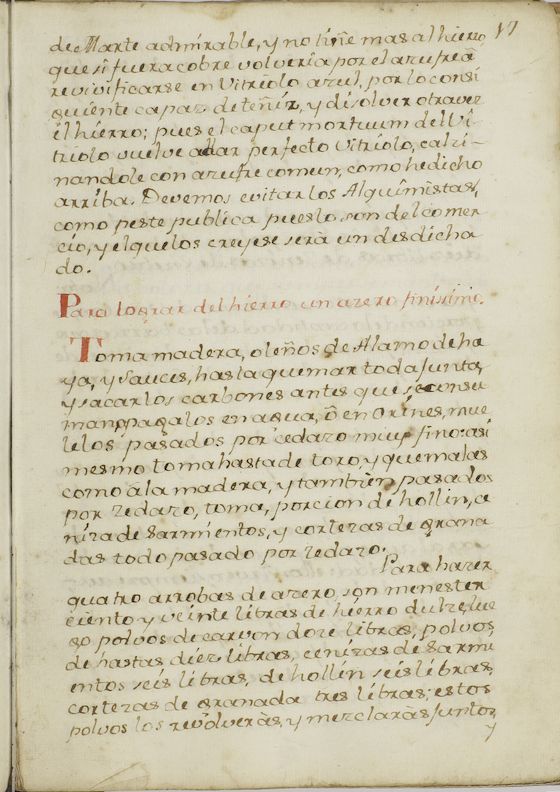 17
de Marte admirable, y no tiñe mas al hierro,
que si fuera cobre volveria por el azufre à
revivificarse en Vitriolo azul, por lo consi
guiente capaz de teñir, y disolver otra vez
èl hierro; pues el caput mortuum del Vi-
triolo vuelve a dar perfecto Vitriolo, calci-
nandole con azufre comun, como he dicho
arriba. Devemos evitar los Alquimistas,
como peste publica pues lo son del comer
cio, y el que los creyese serà un desdicha
do.
Para lograr del hierro un azero finisimo.
Toma madera, o leños de Alamo de ha
ya, y Sauces, hasta quemar toda junta,
y sacar los carbones antes que se consu
man, apagalos en agua, ò en Orines, mue
lelos pasados por cedazo muy fino: asi
mesmo toma hasta de toro, y quemalas
como à la madera, y tambien pasados
por zedazo, toma, porcion de hollin, ce
niza de Sarmientos, y cortezas de grana
das todo pasado por zedazo.
Para hazer
quatro arrobas de azero, son menester
ciento y veinte libras de hierro dulze, lue
go polvos de carvon doze libras, polvos,
de hastas diez libras, cenizas de Sarmi
entos seis libras, de hollin seis libras,
cortezas de granada tres libras; estos
polvos los revolveràs, y mezclaràs juntos,
y